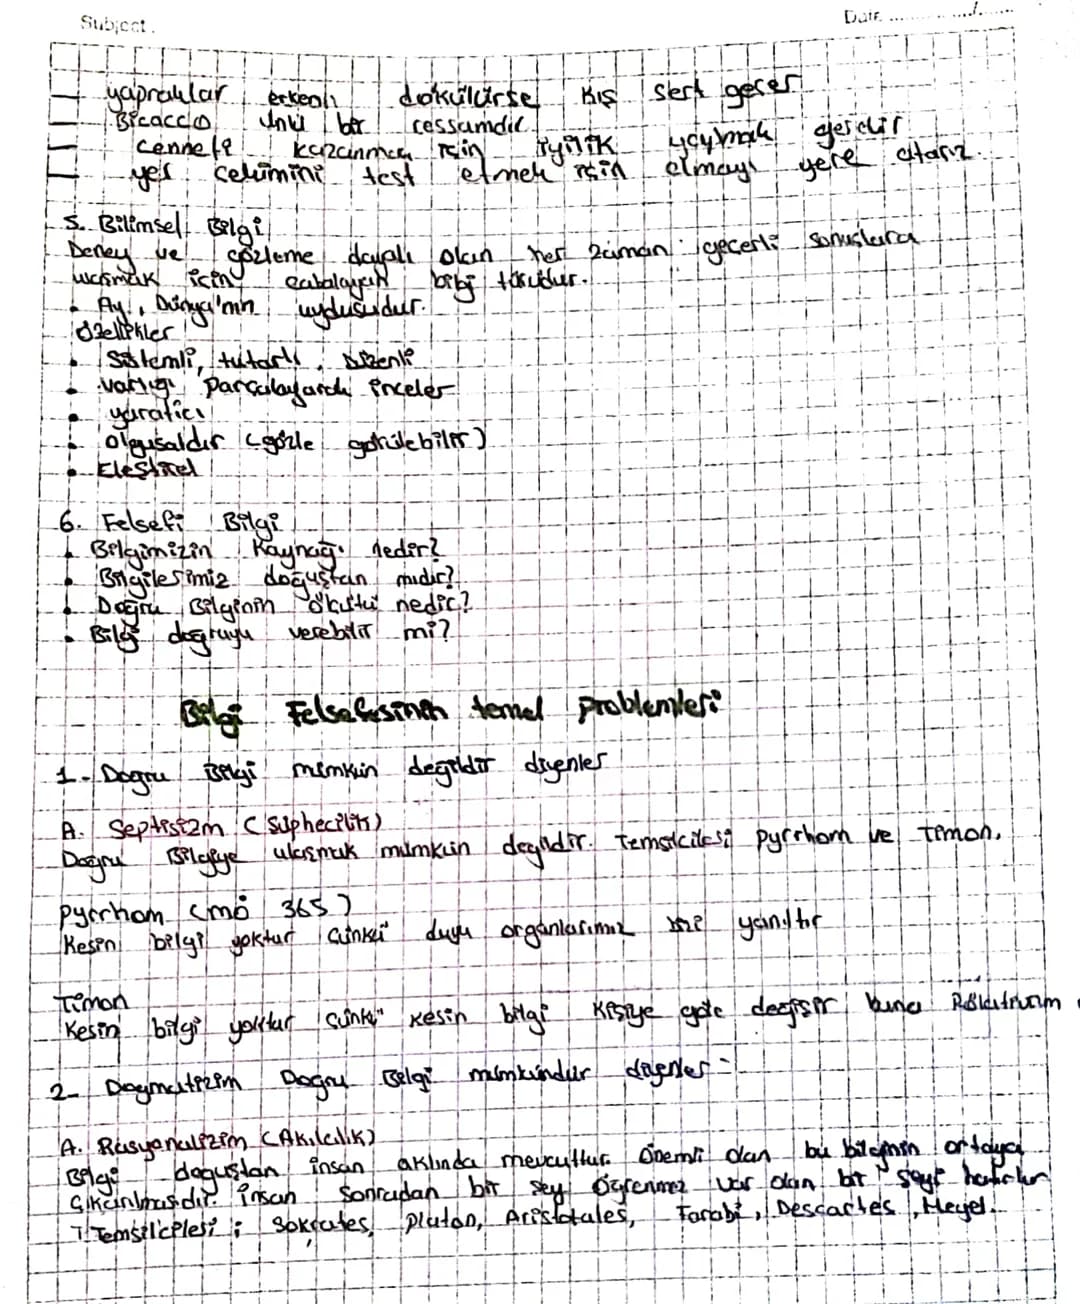 Subject.
Date
yapraklar erkenli dökülürse kış sert geçer
Bicacco ünlü bir ressamdır
cennete kazanmak için iyilik yaymak gerekir
yer çekimini test etmek için elmayı yere atarız.
5. Bilimsel Bilgi
Deney ve gözleme dayalı olan her zaman geçerli sonuçlara
ulaşmak için çabalayan bilgi türüdür.
• Ay, Dünya'nın uydusudur.
Özellikler
• Sistemli, tutarlı, düzenli
• varlığı parçalayarak inceler
• yaratıcı
• olgusaldır (gözle görülebilir)
• Eleştirel
6. Felsefi Bilgi
• Bilgimizin Kaynağı nedir?
• Bilgilerimiz doğuştan mıdır?
• Doğru Bilginin ölçütü nedir?
• Bilgi doğruyu verebilir mi?
Bilgi Felsefesinin temel problemleri
1- Dogru Bilgi mümkün değildir diyenler
A. Septisizm (Şüphecilik)
Dogru Bilgiye ulaşmak mümkün değildir. Temsilcilesi Pyrrhom ve Timon.
Pyrrhom (mö 365)
Kesin bilgi yoktur çünkü duyu organlarımız yanıltır
Timon
Kesin bilgi yoktur çünkü kesin bilgi kişiye göre değişir buna
2- Dogmatizim Dogru Bilgi mümkündür diyenler =
A. Rasyonalizim (Akılcılık)
Bilgi dogustan insan aklında mevcuttur. Önemli olan bu bilginin ortaya
Çıkarılmasıdır. İnsan sonradan bir şey öğrenmez var olan bir şeyi hatırlar
Temsilcilesi; Sokrates, Platon, Aristotales, Farabi, Descartes, Heyel.